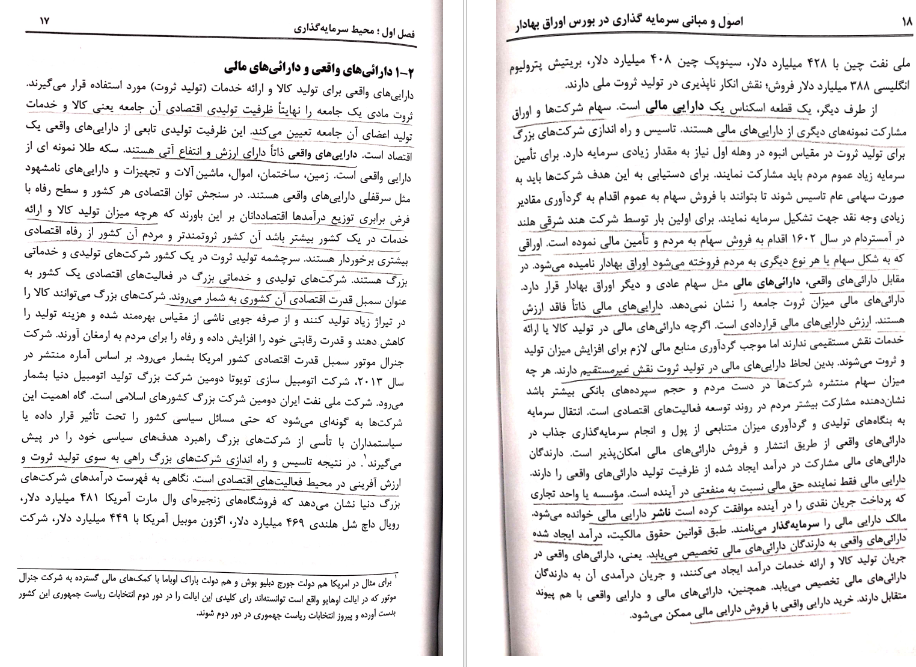 ۱۷
فصل اول ؛ محیط سرمایه‌گذاری
۲–۱ دارائی‌های واقعی و دارائی‌های مالی
دارایی‌های واقعی برای تولید کالا و ارائه خدمات (تولید ثروت) مورد استفاده قرار می‌گیرند.
ثروت مادی یک جامعه را نهایتاً ظرفیت تولیدی اقتصادی آن جامعه یعنی کالا و خدمات
تولید اعضای آن جامعه تعیین می‌کند. این ظرفیت تولیدی تابعی از دارایی‌های واقعی یک
اقتصاد است. دارایی‌های واقعی ذاتاً دارای ارزش و انتفاع آتی هستند. سکه طلا نمونه ای از
دارایی واقعی است. زمین، ساختمان، اموال، ماشین آلات و تجهیزات و دارایی‌های نامشهود
مثل سرقفلی دارایی‌های واقعی هستند. در سنجش توان اقتصادی هر کشور و سطح رفاه با
فرض برابری توزیع درآمدها اقتصاددانان بر این باورند که هرچه میزان تولید کالا و ارائه
خدمات در یک کشور بیشتر باشد آن کشور ثروتمندتر و مردم آن کشور از رفاه اقتصادی
بیشتری برخوردار هستند. سرچشمه تولید ثروت در یک کشور شرکت‌های تولیدی و خدماتی
بزرگ هستند. شرکت‌های تولیدی و خدماتی بزرگ در فعالیت‌های اقتصادی یک کشور به
عنوان سمبل قدرت اقتصادی آن کشوری به شمار می‌روند. شرکت‌های بزرگ می‌توانند کالا را
در تیراژ زیاد تولید کنند و از صرفه جویی ناشی از مقیاس بهره‌مند شده و هزینه تولید را
کاهش دهند و قدرت رقابتی خود را افزایش داده و رفاه را برای مردم به ارمغان آورند. شرکت
جنرال موتور سمبل قدرت اقتصادی کشور امریکا بشمار می‌رود. بر اساس آماره منتشر در
سال ۲۰۱۳، شرکت اتومبیل سازی تویوتا دومین شرکت بزرگ تولید اتومبیل دنیا بشمار
می‌رود. شرکت ملی نفت ایران دومین شرکت بزرگ کشورهای اسلامی است. گاه اهمیت این
شرکت‌ها به گونه‌ای می‌شود که حتی مسائل سیاسی کشور را تحت تأثیر قرار داده یا
سیاستمداران با تأسی از شرکت‌های بزرگ راهبرد هدف‌های سیاسی خود را در پیش
می‌گیرند¹. در نتیجه تاسیس و راه اندازی شرکت‌های بزرگ راهی به سوی تولید ثروت و
ارزش آفرینی در محیط فعالیت‌های اقتصادی است. نگاهی به فهرست درآمدهای شرکت‌های
بزرگ دنیا نشان می‌دهد که فروشگاه‌های زنجیره‌ای وال مارت آمریکا ۴۸۱ میلیارد دلار،
رویال داچ شل هلندی ۴۶۹ میلیارد دلار، اگزون موبیل آمریکا با ۴۴۹ میلیارد دلار، شرکت
¹ برای مثال در امریکا هم دولت جورج دبلیو بوش و هم دولت باراک اوباما با کمک‌های مالی گسترده به شرکت جنرال
موتور که در ایالت اوهایو واقع است توانسته‌اند رای کلیدی این ایالت را در دور دوم انتخابات ریاست جمهوری این کشور
بدست آورده و پیروز انتخابات ریاست جهموری در دور دوم شوند.
۱۸
اصول و مبانی سرمایه گذاری در بورس اوراق بهادار
ملی نفت چین با ۴۲۸ میلیارد دلار، سینوپک چین ۴۰۸ میلیارد دلار، بریتیش پترولیوم
انگلیسی ۳۸۸ میلیارد دلار فروش؛ نقش انکار ناپذیری در تولید ثروت ملی دارند.
از طرف دیگر، یک قطعه اسکناس یک دارایی مالی است. سهام شرکت‌ها و اوراق
مشارکت نمونه‌های دیگری از دارایی‌های مالی هستند. تاسیس و راه اندازی شرکت‌های بزرگ
برای تولید ثروت در مقیاس انبوه در وهله اول نیاز به مقدار زیادی سرمایه دارد. برای تأمین
سرمایه زیاد عموم مردم باید مشارکت نمایند. برای دستیابی به این هدف شرکت‌ها باید به
صورت سهامی عام تاسیس شوند تا بتوانند با فروش سهام به عموم اقدام به گردآوری مقادیر
زیادی وجه نقد جهت تشکیل سرمایه نمایند. برای اولین بار توسط شرکت هند شرقی هلند
در آمستردام در سال ۱۶۰۲ اقدام به فروش سهام به مردم و تأمین مالی نموده است. اوراقی
که به شکل سهام یا هر نوع دیگری به مردم فروخته می‌شود اوراق بهادار نامیده می‌شود. در
مقابل دارائی‌های واقعی، دارائی‌های مالی مثل سهام عادی و دیگر اوراق بهادار قرار دارد.
دارائی‌های مالی میزان ثروت جامعه را نشان نمی‌دهد. دارایی‌های مالی ذاتاً فاقد ارزش
هستند. ارزش دارایی‌های مالی قراردادی است. اگرچه دارائی‌های مالی در تولید کالا یا ارائه
خدمات نقش مستقیمی ندارند اما موجب گردآوری منابع مالی لازم برای افزایش میزان تولید
و ثروت می‌شوند. بدین لحاظ دارایی‌های مالی در تولید ثروت نقش غیرمستقیم دارند. هر چه
میزان سهام منتشره شرکت‌ها در دست مردم و حجم سپرده‌های بانکی بیشتر باشد
نشان‌دهنده مشارکت بیشتر مردم در روند توسعه فعالیت‌های اقتصادی است. انتقال سرمایه
به بنگاه‌های تولیدی و گردآوری میزان متنابعی از پول و انجام سرمایه‌گذاری جذاب در
دارائی‌های واقعی از طریق انتشار و فروش دارائی‌های مالی امکان‌پذیر است. دارندگان
دارائی‌های مالی مشارکت در درآمد ایجاد شده از ظرفیت تولید دارائی‌های واقعی را دارند.
دارایی مالی فقط نماینده حق مالی نسبت به منفعتی در آینده است. مؤسسه یا واحد تجاری
که پرداخت جریان نقدی را در آینده موافقت کرده است ناشر دارایی مالی خوانده می‌شود.
مالک دارایی مالی را سرمایه‌گذار می‌نامند. طبق قوانین حقوق مالکیت، درآمد ایجاد شده
دارائی‌های واقعی به دارندگان دارائی‌های مالی تخصیص می‌یابد. یعنی، دارائی‌های واقعی در
جریان تولید کالا و ارائه خدمات درآمد ایجاد می‌کنند، و جریان درآمدی آن به دارندگان
دارائی‌های مالی تخصیص می‌یابد. همچنین، دارائی‌های مالی و دارایی واقعی با هم پیوند
متقابل دارند. خرید دارایی واقعی با فروش دارایی مالی ممکن می‌شود.